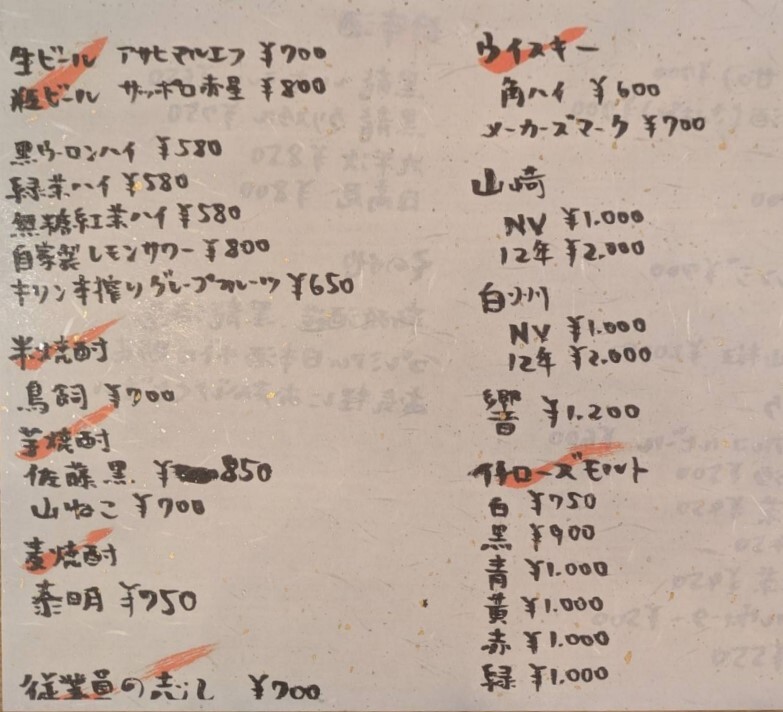 生ビール アサヒマルエフ ¥700
瓶ビール サッポロ赤星 ¥800
黒ウーロンハイ ¥580
緑茶ハイ ¥580
無糖紅茶ハイ ¥580
自家製レモンサワー ¥800
キリン手搾りグレープフルーツ ¥650
米焼酎
鳥飼 ¥700
芋焼酎
佐藤黒 ¥850
山ねこ ¥700
麦焼酎
泰明 ¥750
従業員の志し ¥700
ウイスキー
角ハイ ¥600
メーカーズマーク ¥700
山崎
NV ¥1.000
12年 ¥2.000
白州
NV ¥1.000
12年 ¥2.000
響 ¥1.200
ローズモルト
白 ¥750
黒 ¥900
青 ¥1.000
黄 ¥1.000
赤 ¥1.000
緑 ¥1.000